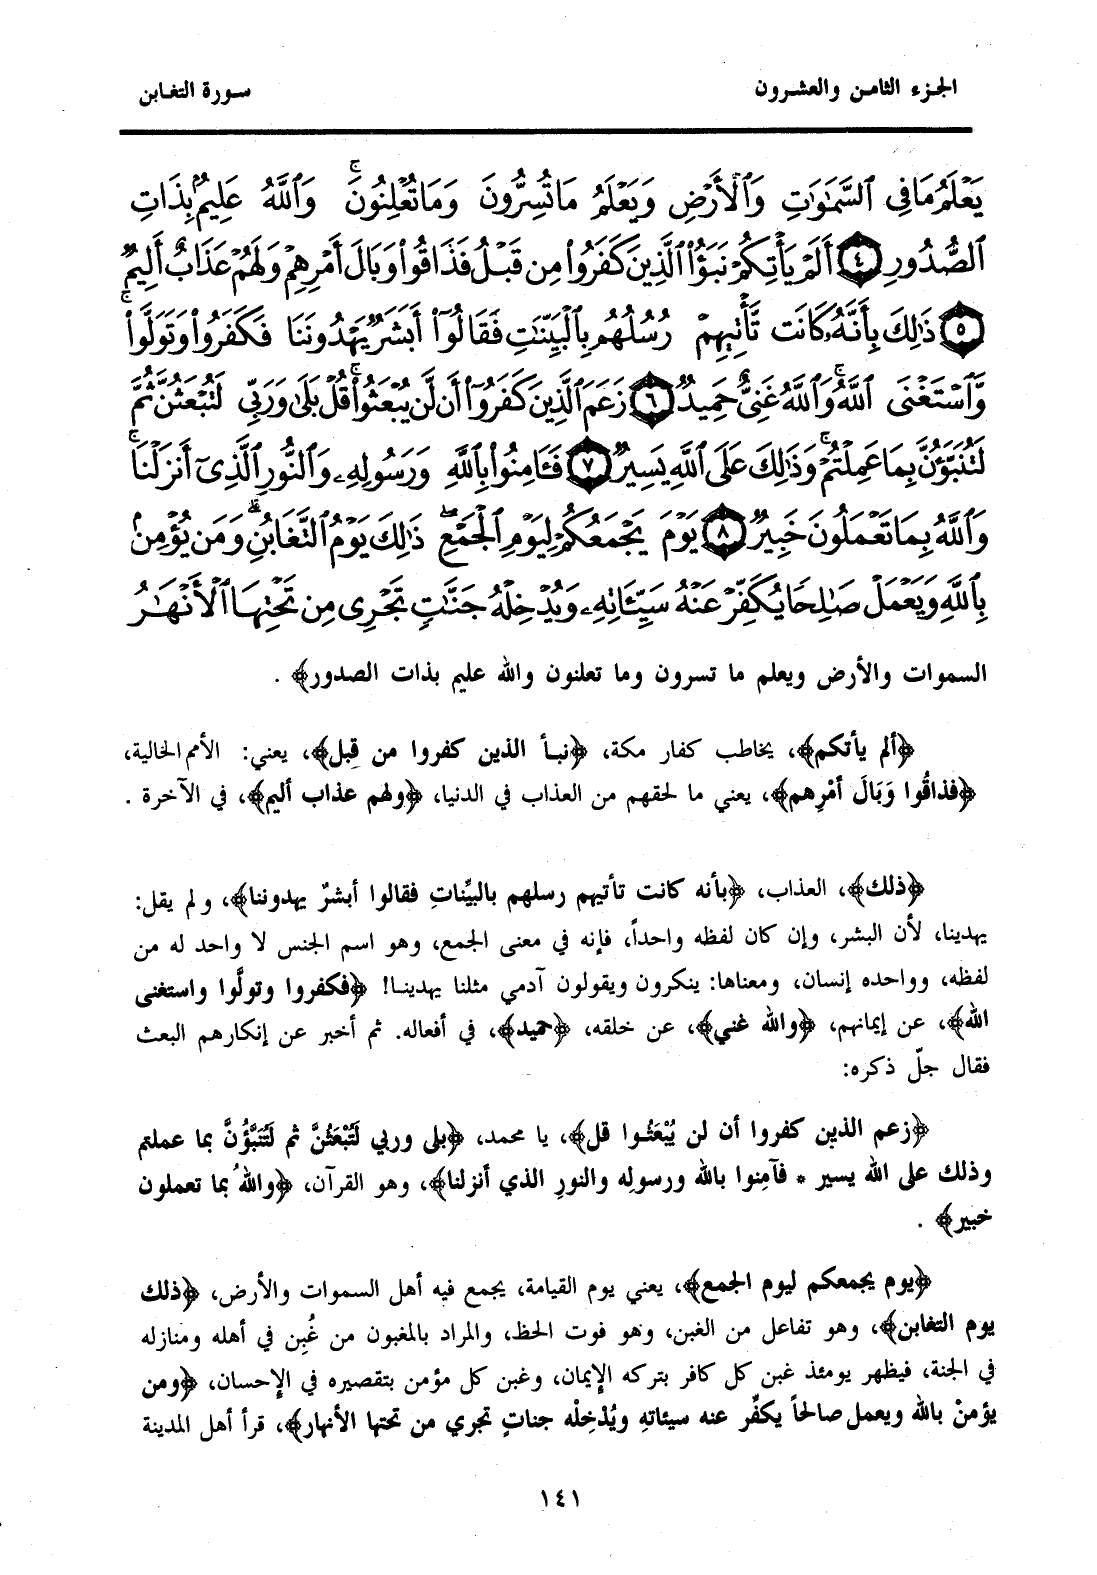 الجزء الثامن والعشرون
سورة التغابن
يَعْلَمُ مَا فِى ٱلسَّمَٰوَٰتِ وَٱلْأَرْضِ وَيَعْلَمُ مَا تُسِرُّونَ وَمَا تُعْلِنُونَ ۚ وَٱللَّهُ عَلِيمٌۢ بِذَاتِ
ٱلصُّدُورِ ﴿٤﴾ أَلَمْ يَأْتِكُمْ نَبَؤُا۟ ٱلَّذِينَ كَفَرُوا۟ مِن قَبْلُ فَذَاقُوا۟ وَبَالَ أَمْرِهِمْ وَلَهُمْ عَذَابٌ أَلِيمٌ
﴿٥﴾ ذَٰلِكَ بِأَنَّهُۥ كَانَت تَّأْتِيهِمْ رُسُلُهُم بِٱلْبَيِّنَٰتِ فَقَالُوٓا۟ أَبَشَرٌ يَهْدُونَنَا فَكَفَرُوا۟ وَتَوَلَّوا۟ ۚ
وَّٱسْتَغْنَى ٱللَّهُ ۚ وَٱللَّهُ غَنِىٌّ حَمِيدٌ ﴿٦﴾ زَعَمَ ٱلَّذِينَ كَفَرُوٓا۟ أَن لَّن يُبْعَثُوا۟ ۚ قُلْ بَلَىٰ وَرَبِّى لَتُبْعَثُنَّ ثُمَّ
لَتُنَبَّؤُنَّ بِمَا عَمِلْتُمْ ۚ وَذَٰلِكَ عَلَى ٱللَّهِ يَسِيرٌ ﴿٧﴾ فَـَٔامِنُوا۟ بِٱللَّهِ وَرَسُولِهِۦ وَٱلنُّورِ ٱلَّذِىٓ أَنزَلْنَا ۚ
وَٱللَّهُ بِمَا تَعْمَلُونَ خَبِيرٌ ﴿٨﴾ يَوْمَ يَجْمَعُكُمْ لِيَوْمِ ٱلْجَمْعِ ۖ ذَٰلِكَ يَوْمُ ٱلتَّغَابُنِ ۗ وَمَن يُؤْمِنۢ
بِٱللَّهِ وَيَعْمَلْ صَٰلِحًا يُكَفِّرْ عَنْهُ سَيِّـَٔاتِهِۦ وَيُدْخِلْهُ جَنَّٰتٍ تَجْرِى مِن تَحْتِهَا ٱلْأَنْهَٰرُ
السموات والأرض ويعلم ما تسرون وما تعلنون والله عليم بذات الصدور﴾ .
﴿ألم يأتكم﴾، يخاطب كفار مكة، ﴿نبأ الذين كفروا من قبل﴾، يعني: الأمم الخالية،
﴿فذاقُوا وَبَالَ أمْرِهم﴾، يعني ما لحقهم من العذاب في الدنيا، ﴿ولهم عذاب أليم﴾، في الآخرة .
﴿ذلك﴾، العذاب، ﴿بأنه كانت تأتيهم رسلهم بالبيِّناتِ فقالوا أبشرٌ يهدوننا﴾، ولم يقل:
يهدينا، لأن البشر، وإن كان لفظه واحداً، فإنه في معنى الجمع، وهو اسم الجنس لا واحد له من
لفظه، وواحده إنسان، ومعناها: ينكرون ويقولون آدمي مثلنا يهدينا! ﴿فكفروا وتولَّوا واستغنى
الله﴾، عن إيمانهم، ﴿والله غني﴾، عن خلقه، ﴿حميد﴾، في أفعاله. ثم أخبر عن إنكارهم البعث
فقال جلّ ذكره:
﴿زعم الذين كفروا أن لن يُبْعَثُـوا قل﴾، يا محمد، ﴿بلى وربي لَتُبْعَثُنَّ ثم لَتُنَبَّؤُنَّ بما عملتم
وذلك على الله يسير * فآمِنوا بالله ورسولِه والنورِ الذي أنزلنا﴾، وهو القرآن، ﴿واللهُ بما تعملون
خبير﴾ .
﴿يوم يجمعكم ليوم الجمع﴾، يعني يوم القيامة، يجمع فيه أهل السموات والأرض، ﴿ذلك
يوم التغابن﴾، وهو تفاعل من الغبن، وهو فوت الحظ، والمراد بالمغبون من غُبِن في أهله ومنازله
في الجنة، فيظهر يومئذ غبن كل كافر بتركه الإيمان، وغبن كل مؤمن بتقصيره في الإحسان، ﴿ومن
يؤمنْ بالله ويعمل صالحاً يكفِّر عنه سيئاتهِ ويُدْخِلْه جناتٍ تجري من تحتها الأنهار﴾، قرأ أهل المدينة
١٤١